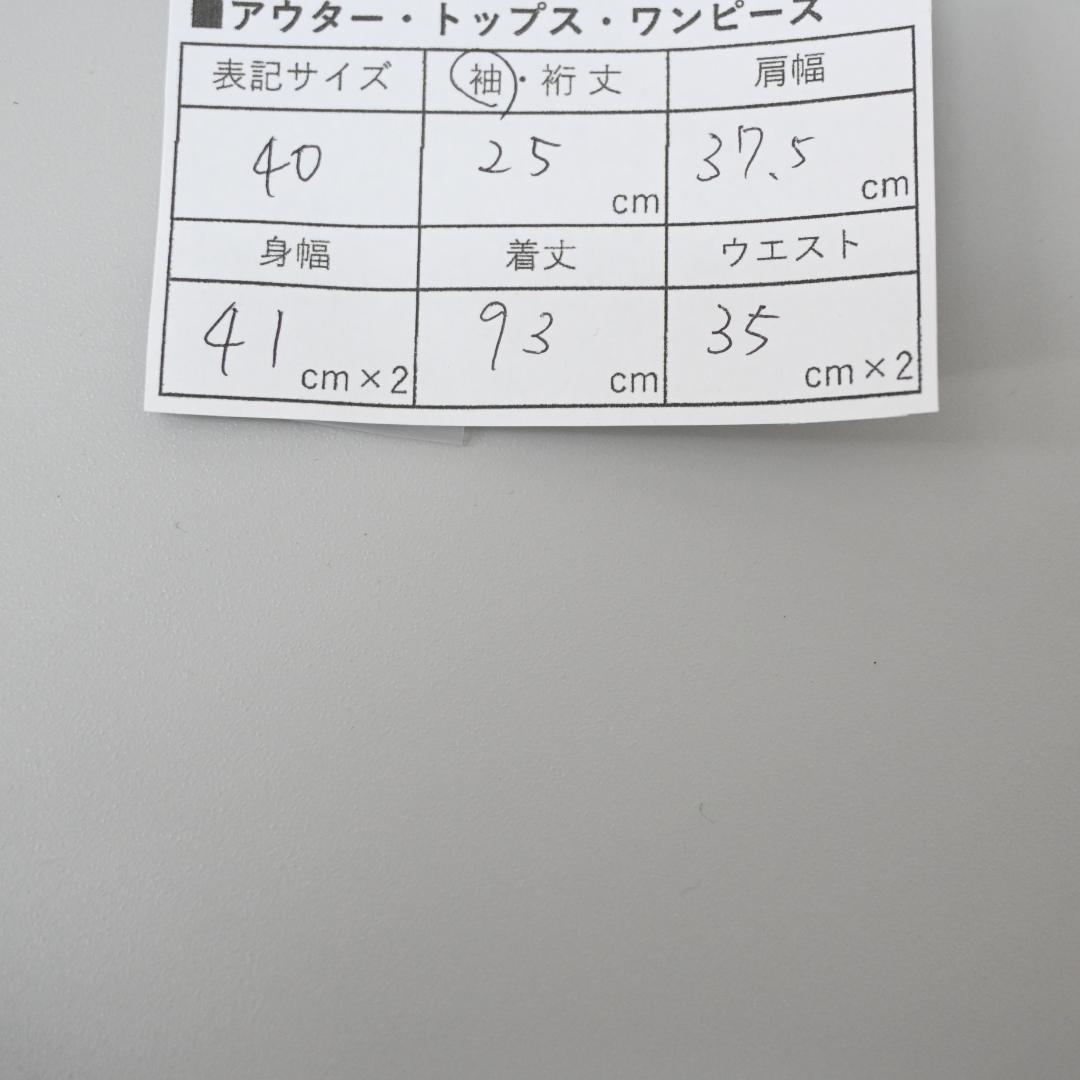 ■アウター・トップス・ワンピース
表記サイズ 袖・裄丈 肩幅
40 25 cm 37.5 cm
身幅 着丈 ウエスト
41 cm×2 93 cm 35 cm×2